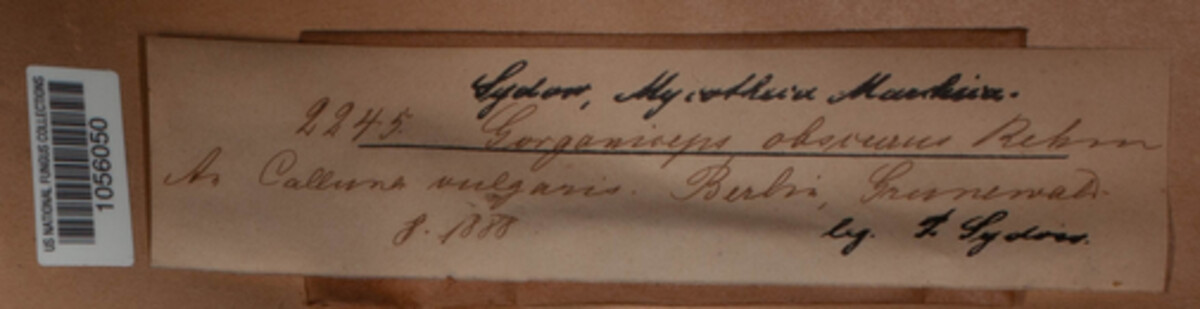 US NATIONAL FUNGUS COLLECTIONS
1056050
Sydow, Mycotheca Marchica.
2245. Gorgoniceps obscurus Rehm
An Calluna vulgaris. Berlin, Grunewald.
8. 1888
leg. P. Sydow.